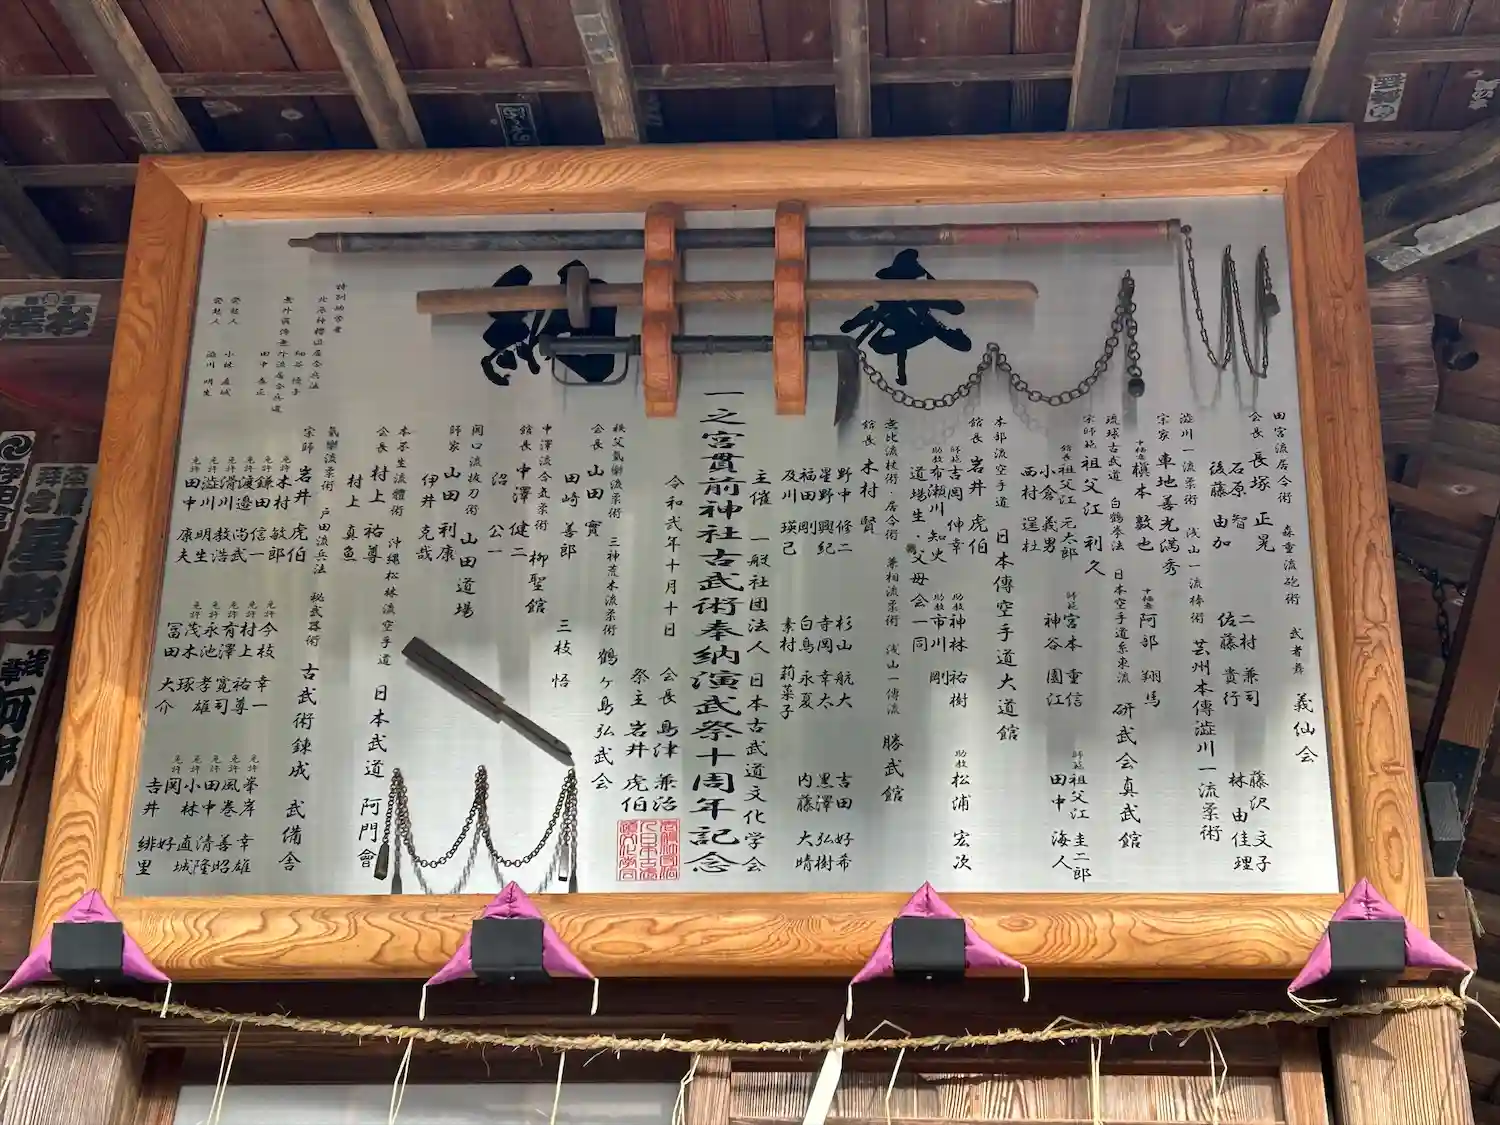 奉納
田宮流居合術 森重流砲術 武者舞 義仙会
会長 長塚 正晃
石原 智
後藤 由加
二村 兼司
佐藤 貴行
藤沢 文子
林 由佳理
澁川一流柔術 浅山一流棒術 芸州本傳澁川一流柔術
宗家 車地善光満秀
榎本 敦也
阿部 翔馬
琉球古武道 白鶴拳法 日本空手道糸東流 研武会真武館
宗師範 祖父江 利久
館長 祖父江 元太郎
小倉 義男
西村 逞杜
師範 宮本 重信
神谷 園江
師範 祖父江 圭二郎
田中 海人
本部流空手道 日本傳空手道大道館
館長 岩井 虎伯
師範 古岡 伸幸
助教 布瀬川 知史
道場生・父母会一同
助教 神林 祐樹
助教 市川 剛
助教 松浦 宏次
無比流杖術・居合術 兼相流柔術 浅山一傳流 勝武館
館長 木村 賢
野中 修二
星野 興紀
福田 剛
及川 瑛己
杉山 航大
寺岡 幸太
白鳥 永夏
素村 莉菜子
吉田 好希
黒澤 弘樹
内藤 大晴
主催 一般社団法人 日本古武道文化学会
一之宮貫前神社古武術奉納演武祭十周年記念
令和弐年十月十日
会長 島津 兼治
祭主 岩井 虎伯
秩父氣樂流柔術 三神荒木流柔術 鶴ヶ島弘武会
会長 山田 實
田崎 善郎
三枝 悟
中澤流合気柔術 柳聖館
館長 中澤 健二
沼 公一
関口流抜刀術 山田道場
師家 山田 利康
伊井 克哉
本荅生流體術 沖縄松林流空手道 日本武道 阿門會
会長 村上 祐尊
村上 真魚
氣樂流柔術 戸田流兵法 秘武器術 古武術錬成 武備舎
宗師 岩井 虎伯
免許 木村 敏郎
免許 鎌田 信一
免許 渡邉 尚武
免許 滑川 教浩
免許 澁川 明生
免許 田中 康夫
免許 今枝 幸一
免許 村上 祐尊
免許 有澤 寛司
免許 永池 孝雄
免許 茂木 琢
冨田 大介
免許 峯岸 幸雄
免許 風巻 善昭
免許 田中 清隆
免許 小林 直城
免許 関 好
吉井 緋里
特別納誉者
細谷 優子
田中 泰正
発起人 小林 直城
発起人 澁川 明生